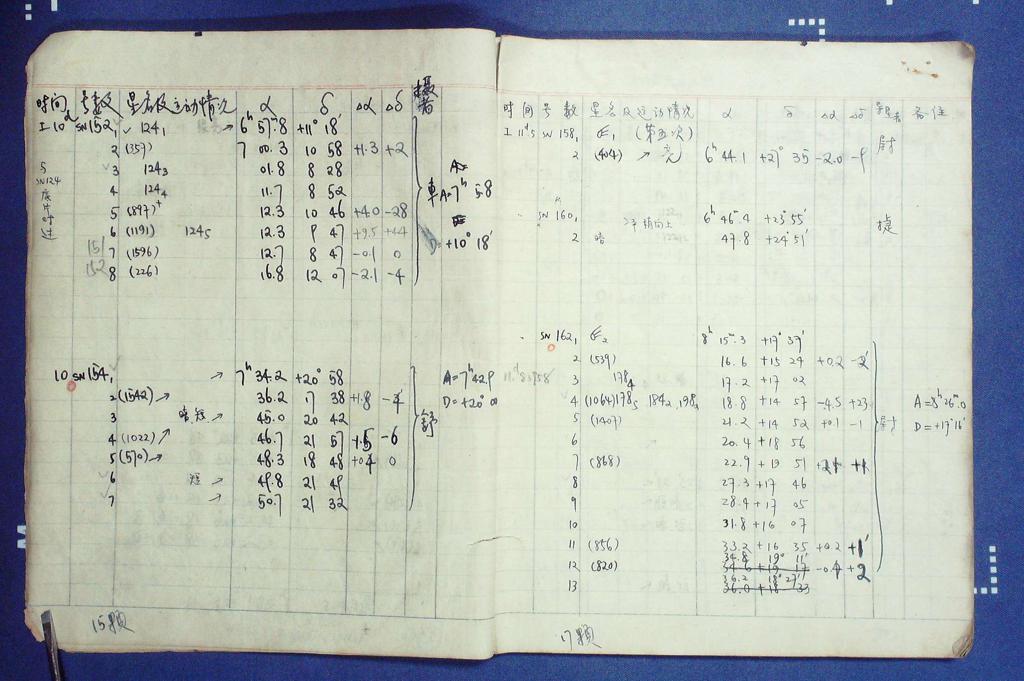 时间 号数 星名及运动情况 α δ Δα Δδ 摄者
I 10 SN152, 1 ✓ 124₁ → 6ʰ 57ᵐ.8 +11° 18′
2 (357) 7 00.3 10 58 +1.3 +2
3 124₃ 01.8 8 28
4 124₄ 11.7 8 52
5 (897)⁺ 12.3 10 46 +4.0 -28
6 (1191) 124₅ 12.3 9 47 +9.5 +44
151 7 (1596) 12.7 8 47 -0.1 0
152 8 (226) 16.8 12 07 -2.1 -4
A=7ʰ 58
D=+10° 18′
SN124
底片
10 SN154, 1 → 7ʰ 34.2 +20° 58
2 (1542) → 36.2 17 38 +1.8 -4
3 暗短 → 45.0 20 42
4 (1022) ↗ 46.7 21 57 +.5 -6
5 (570) → 48.3 18 48 +0.4 0
6 短 → 49.8 21 49
7 → 50.7 21 32
A=7ʰ42.9
D=+20° 00
舒
15颗
时间 号数 星名及运动情况 α δ Δα Δδ 备注
I 11ᵈ.5 SN 158, 1 (第五次) 尉
2 (404) → 亮 6ʰ 44.1 +27° 35 -2.0 -9
SN 160, 1 6ʰ 46ᵐ.4 +23° 55′ 捷
2 暗 47.8 +24° 51′
SN 162, 1 8ʰ 15ᵐ.3 +17° 37′
2 (539) 16.6 +15 27 +0.2 -2′
3 178₄ 17.2 +17 02
4 (1064) 178₅ 184₂, 198₂ 18.8 +14 57 -4.5 +23
5 (1407) 21.2 +14 52 +0.1 -1
6 20.4 +18 56
7 (868) 22.9 +19 51
8 27.3 +17 46
9 28.4 +17 05
10 31.8 +16 07
11 (856) 33.2 +16 35 +0.2 +1′
34.8 19° 11′
12 (820) -0.4 +2
36.2 18° 27′
13 36.0 +18 33
尉
A=8ʰ26ᵐ.0
D=+17° 16′
17颗